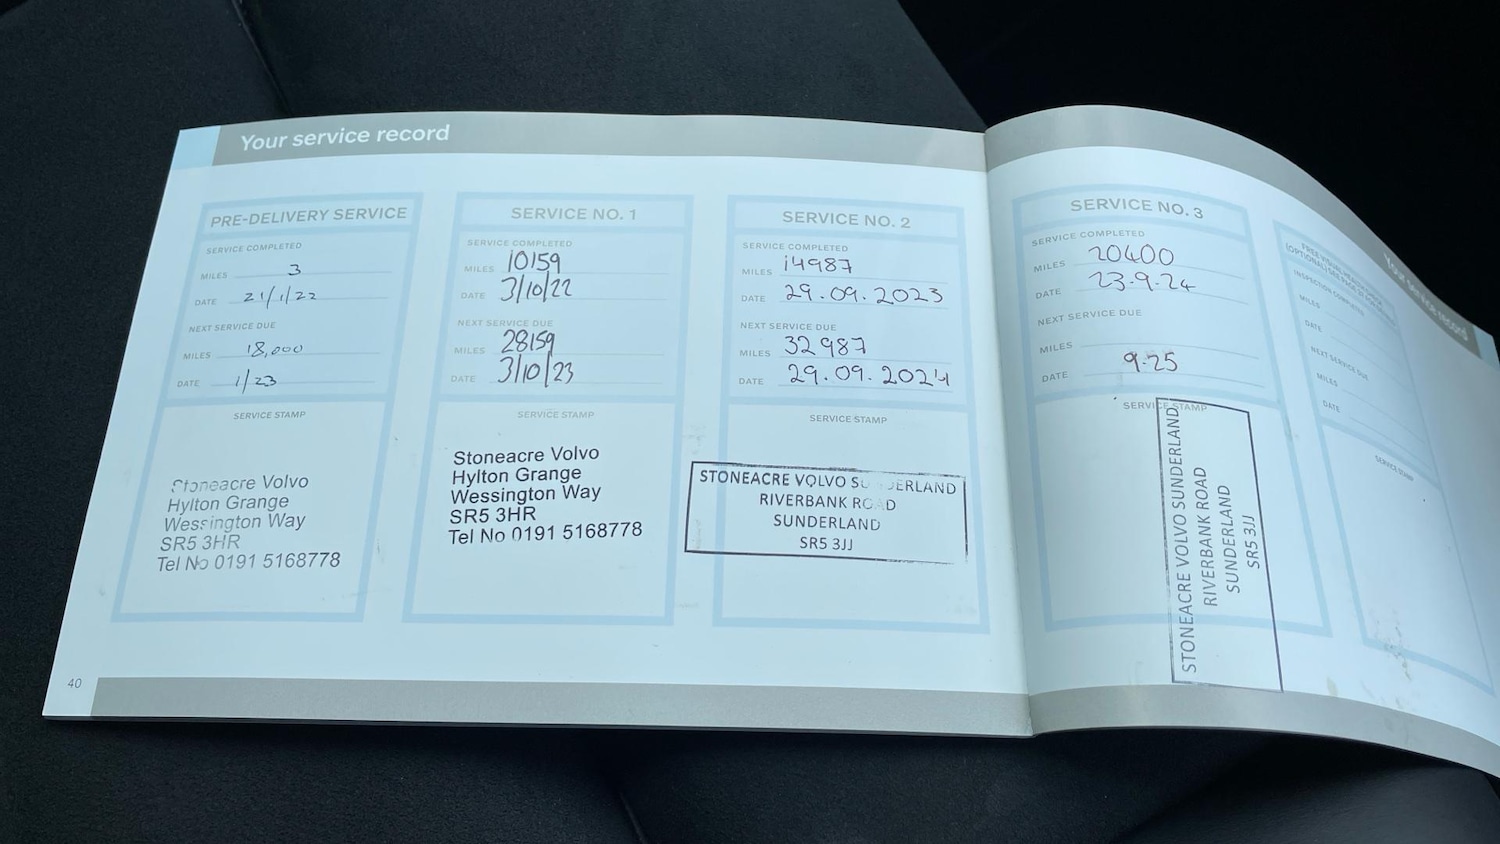 Your service record
PRE-DELIVERY SERVICE
SERVICE COMPLETED
MILES 3
DATE 21/1/22
NEXT SERVICE DUE
MILES 18,000
DATE 1/23
SERVICE STAMP
Stoneacre Volvo
Hylton Grange
Wessington Way
SR5 3HR
Tel No 0191 5168778
SERVICE NO. 1
SERVICE COMPLETED
MILES 10159
DATE 3/10/22
NEXT SERVICE DUE
MILES 28159
DATE 3/10/23
SERVICE STAMP
Stoneacre Volvo
Hylton Grange
Wessington Way
SR5 3HR
Tel No 0191 5168778
SERVICE NO. 2
SERVICE COMPLETED
MILES 14987
DATE 29.09.2023
NEXT SERVICE DUE
MILES 32987
DATE 29.09.2024
SERVICE STAMP
STONEACRE VOLVO SUNDERLAND
RIVERBANK ROAD
SUNDERLAND
SR5 3JJ
40
SERVICE NO. 3
SERVICE COMPLETED
MILES 20400
DATE 23.9.24
NEXT SERVICE DUE
MILES
DATE 9.25
SERVICE STAMP
STONEACRE VOLVO SUNDERLAND
RIVERBANK ROAD
SUNDERLAND
SR5 3JJ
Your service record
FREE VISUAL HEALTH CHECK
(OPTIONAL) SEE PAGE
INSPECTION COMPLETED
MILES
DATE
NEXT SERVICE DUE
MILES
DATE
SERVICE STAMP